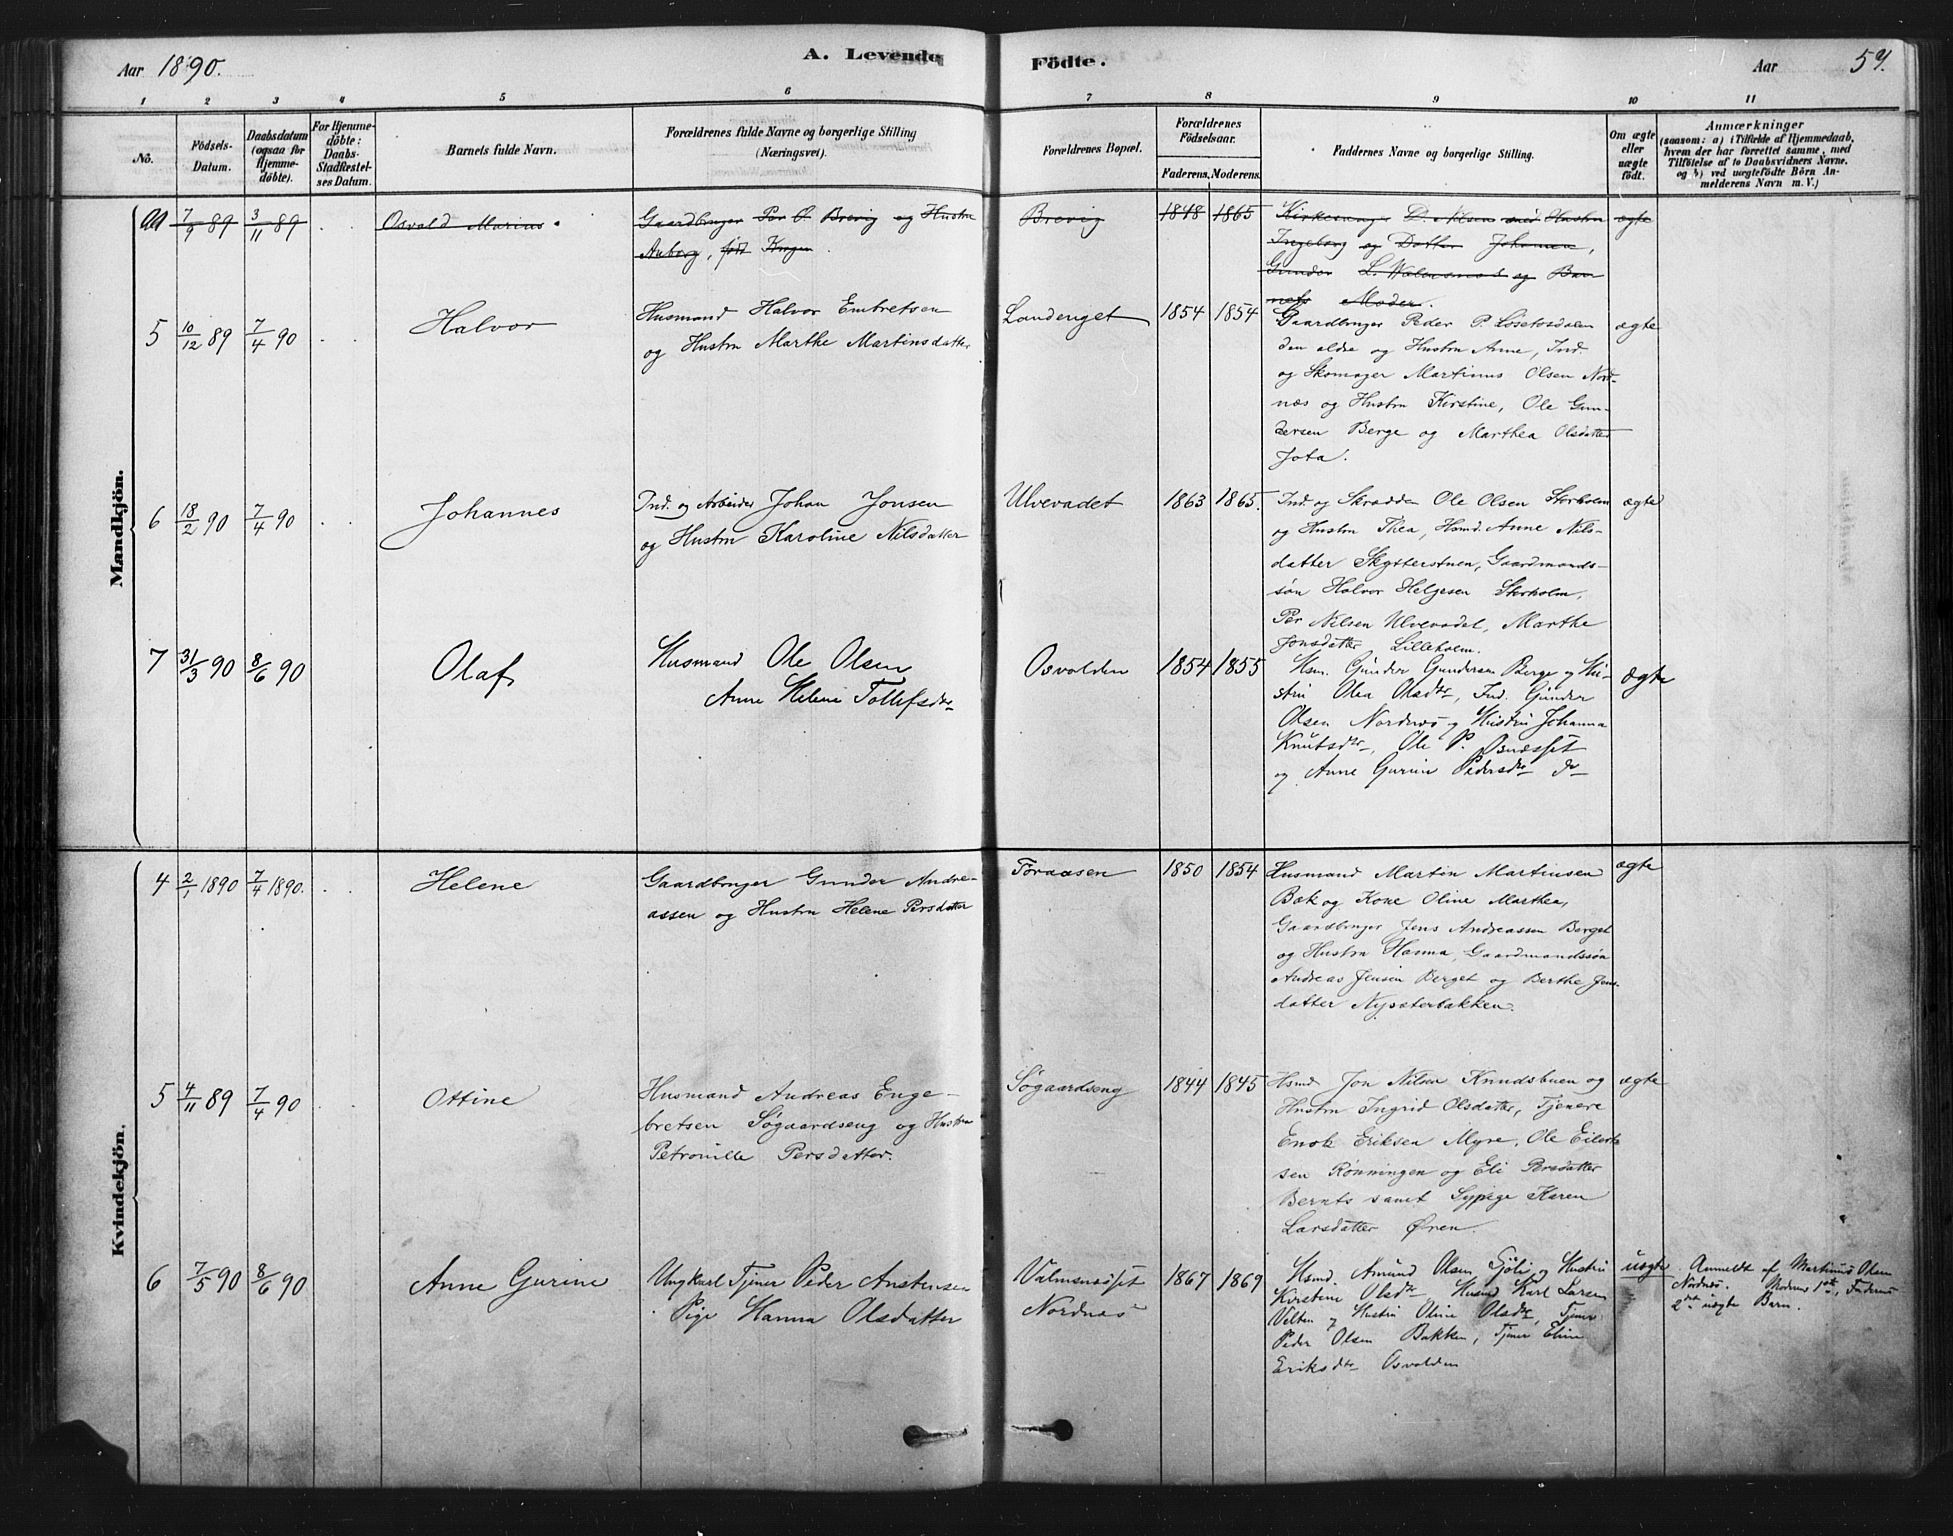 Aar 1890.
A. Levende Födte.
Aar 57.
1 2 3 4 5 6 7 8 9 10 11
No.
Födsels-Datum.
Daabsdatum (ogsaa for Hjemmedöbte).
For Hjemmedöbte: Daabs-Stadfæstelses Datum.
Barnets fulde Navn.
Forældrenes fulde Navne og borgerlige Stilling
(Næringsvei).
Forældrenes Bopæl.
Forældrenes Födselsaar.
Faderens. Moderens.
Faddernes Navne og borgerlige Stilling.
Om ægte eller uægte födt.
Anmærkninger
(saasom: a) i Tilfælde af Hjemmedaab,
hvem der har forrettet samme, med
Tilföielse af to Daabsvidners Navne.
og b) ved uægtefödte Börn An-
melderens Navn m. V.)
Mandkjön.
7/9 89 3/11 89 Osvald Marius.
Gaardbruger Per O. Brevig og Hustru
Anborg, født Krogen.
Brevig 1848 1865
Kirkesanger D. Nilsen med Hustru
Ingeborg og Datter Johanna,
Gunder L. og Bar-
nets Moder.
ægte
5 10/12 89 7/4 90 Halvor
Husmand Halvor Embretsen
og Hustru Marthe Martinsdatter
Landenget 1854 1854
Gaardbruger Peder P. Løsetosdalen
den ældre og Hustru Anne, Ind.
og Skomager Martinus Olsen Nord-
næs og Hustru Kirstine, Ole Gun-
dersen Berge og Marthea Olsdatter
Jota.
ægte
6 18/2 90 7/4 90 Johannes
Ind. og Arbeider Johan Jonsen
og Hustru Karoline Nilsdatter
Ulvevadet 1863 1865.
Ind. og Skrædder Ole Olsen Storholm
og Hustru Thea, Hsmd. Anne Nils-
datter Skytterstuen, Gaardmands-
søn Halvor Helgesen Storholm,
Per Nilsen Ulvevadet, Marthe
Jonsdatter Lilleholm.
ægte
7 31/3 90 8/6 90 Olaf
Husmand Ole Olsen
Anne Helene Tollefsdtr
Osvolden 1854 1855
Hsm. Gunder Gundersen Berge og Hu-
stru Olea Olsdtr, Ind. Gunder
Olsen Nordnæs og Hustru Johanna
Knutsdtr, Ole P.
og Anne Gurine Pedersdtr do
ægte
Kvindekjön.
4 2/1 1890 7/4 1890. Helene
Gaardbruger Gunder Andre-
assen og Hustru Helene Persdatter
Foraasen 1850 1854
Husmand Martin Martinsen
Bæk og Kone Oline Marthea,
Gaardbruger Jens Andreassen Berget
og Hustru Hanna, Gaardmandssøn
Andreas Jensen Berget og Berthe Jens-
datter Nysæterbakken.
ægte
5 4/11 89 7/4 90 Ottine
Husmand Andreas Enge-
bretsen Søgaardseng og Hustru
Petronille Persdatter.
Søgaardseng 1844 1845
Hsmd Jon Nilsen Knudsbuen og
Hustru Ingrid Olsdatter, Tjenere
Enok Eriksen Myre, Ole Eilert-
sen Rønningen og Eli Persdatter
Bernts samt Sypige Karen
Larsdatter Øren.
ægte
6 7/5 90 8/6 90 Anne Gurine
Ungkarl Tjener Peder Austensen
Pige Hanna Olsdatter
Valmenæsset
Nordnæs
1867 1869
Hsmd. Amund Olsen Sjøli og Hustru
Kirstine Olsdtr, Husmd Karl Larsen
Velten og Hustru Oline Olsdtr, Tjener
Peder Olsen Bakken, Tjener Eline
Eriksdtr Osvolden
uægte
Anmeldt af Martinus Olsen
Nordnæs. Moderens 1ste, Faderens
2det uægte Barn.